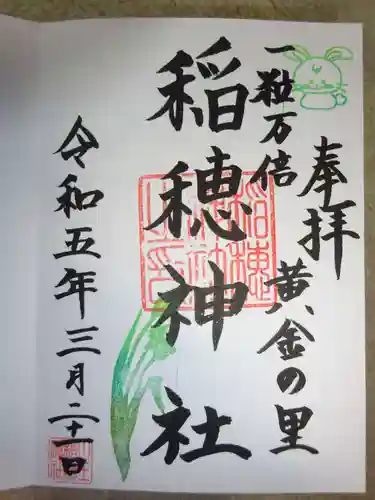 奉拝
黄金の里
一粒万倍
稲穂神社
令和五年三月二十一日